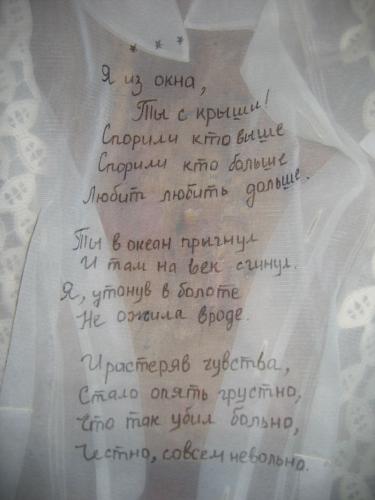 ***
Я из окна,
Ты с крыши!
Спорили кто выше
Спорили кто больше
Любит любить дольше.
Ты в океан прыгнул
И там на век сгинул.
Я, утонув в болоте
Не ожила вроде.
И растеряв чувства,
Стало опять грустно,
Что так убил больно,
Честно, совсем невольно.